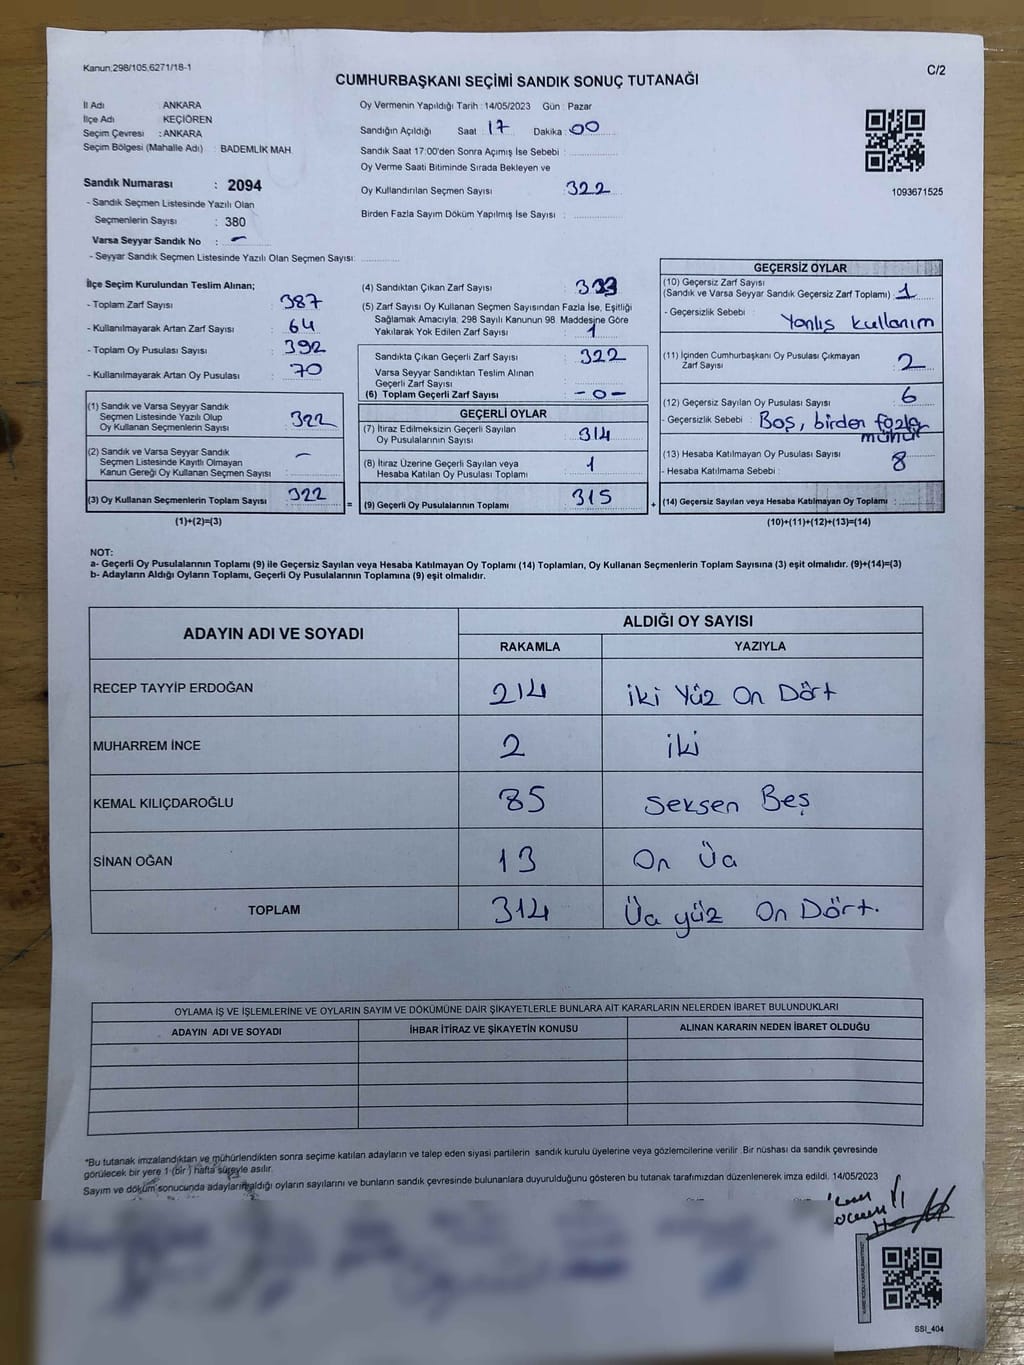 Kanun,298/105,6271/18-1
C/2
CUMHURBAŞKANI SEÇİMİ SANDIK SONUÇ TUTANAĞI
İl Adı : ANKARA
İlçe Adı : KEÇİÖREN
Seçim Çevresi : ANKARA
Seçim Bölgesi (Mahalle Adı) : BADEMLİK MAH
Sandık Numarası : 2094
- Sandık Seçmen Listesinde Yazılı Olan
Seçmenlerin Sayısı : 380
Varsa Seyyar Sandık No : -
- Seyyar Sandık Seçmen Listesinde Yazılı Olan Seçmen Sayısı:
Oy Vermenin Yapıldığı Tarih : 14/05/2023 Gün : Pazar
Sandığın Açıldığı Saat : 17 Dakika : 00
Sandık Saat 17:00'den Sonra Açımış İse Sebebi :
Oy Verme Saati Bitiminde Sırada Bekleyen ve
Oy Kullandırılan Seçmen Sayısı : 322
Birden Fazla Sayım Döküm Yapılmış İse Sayısı :
1093671525
İlçe Seçim Kurulundan Teslim Alınan;
- Toplam Zarf Sayısı : 387
- Kullanılmayarak Artan Zarf Sayısı : 64
- Toplam Oy Pusulası Sayısı : 392
- Kullanılmayarak Artan Oy Pusulası : 70
(1) Sandık ve Varsa Seyyar Sandık
Seçmen Listesinde Yazılı Olup
Oy Kullanan Seçmenlerin Sayısı : 322
(2) Sandık ve Varsa Seyyar Sandık
Seçmen Listesinde Kayıtlı Olmayan
Kanun Gereği Oy Kullanan Seçmen Sayısı : -
(3) Oy Kullanan Seçmenlerin Toplam Sayısı : 322
(1)+(2)=(3)
(4) Sandıktan Çıkan Zarf Sayısı :
(5) Zarf Sayısı Oy Kullanan Seçmen Sayısından Fazla İse, Eşitliği
Sağlamak Amacıyla, 298 Sayılı Kanunun 98. Maddesine Göre
Yakılarak Yok Edilen Zarf Sayısı : 1
Sandıkta Çıkan Geçerli Zarf Sayısı : 322
Varsa Seyyar Sandıktan Teslim Alınan
Geçerli Zarf Sayısı :
(6) Toplam Geçerli Zarf Sayısı : -0-
GEÇERLİ OYLAR
(7) İtiraz Edilmeksizin Geçerli Sayılan
Oy Pusulalarının Sayısı : 314
(8) İtiraz Üzerine Geçerli Sayılan veya
Hesaba Katılan Oy Pusulası Toplamı : 1
= (9) Geçerli Oy Pusulalarının Toplamı : 315 +
GEÇERSİZ OYLAR
(10) Geçersiz Zarf Sayısı
(Sandık ve Varsa Seyyar Sandık Geçersiz Zarf Toplamı) : 1
- Geçersizlik Sebebi : Yanlış kullanım
(11) İçinden Cumhurbaşkanı Oy Pusulası Çıkmayan
Zarf Sayısı : 2
(12) Geçersiz Sayılan Oy Pusulası Sayısı : 6
- Geçersizlik Sebebi : Boş, birden fazla
mühür
(13) Hesaba Katılmayan Oy Pusulası Sayısı : 8
- Hesaba Katılmama Sebebi :
(14) Geçersiz Sayılan veya Hesaba Katılmayan Oy Toplamı :
(10)+(11)+(12)+(13)=(14)
NOT:
a- Geçerli Oy Pusulalarının Toplamı (9) ile Geçersiz Sayılan veya Hesaba Katılmayan Oy Toplamı (14) Toplamları, Oy Kullanan Seçmenlerin Toplam Sayısına (3) eşit olmalıdır. (9)+(14)=(3)
b- Adayların Aldığı Oyların Toplamı, Geçerli Oy Pusulalarının Toplamına (9) eşit olmalıdır.
ADAYIN ADI VE SOYADI ALDIĞI OY SAYISI
RAKAMLA YAZIYLA
RECEP TAYYİP ERDOĞAN 214 iki Yüz On Dört
MUHARREM İNCE 2 iki
KEMAL KILIÇDAROĞLU 85 Seksen Beş
SİNAN OĞAN 13 On Üç
TOPLAM 314 Üç yüz On Dört.
OYLAMA İŞ VE İŞLEMLERİNE VE OYLARIN SAYIM VE DÖKÜMÜNE DAİR ŞİKAYETLERLE BUNLARA AİT KARARLARIN NELERDEN İBARET BULUNDUKLARI
ADAYIN ADI VE SOYADI İHBAR İTİRAZ VE ŞİKAYETİN KONUSU ALINAN KARARIN NEDEN İBARET OLDUĞU
*Bu tutanak imzalandıktan ve mühürlendikten sonra seçime katılan adayların ve talep eden siyasi partilerin sandık kurulu üyelerine veya gözlemcilerine verilir. Bir nüshası da sandık çevresinde
görülecek bir yere 1 (bir) hafta süreyle asılır.
Sayım ve döküm sonucunda adayların aldığı oyların sayılarını ve bunların sandık çevresinde bulunanlara duyurulduğunu gösteren bu tutanak tarafımızdan düzenlenerek imza edildi. 14/05/2023
SSI_404